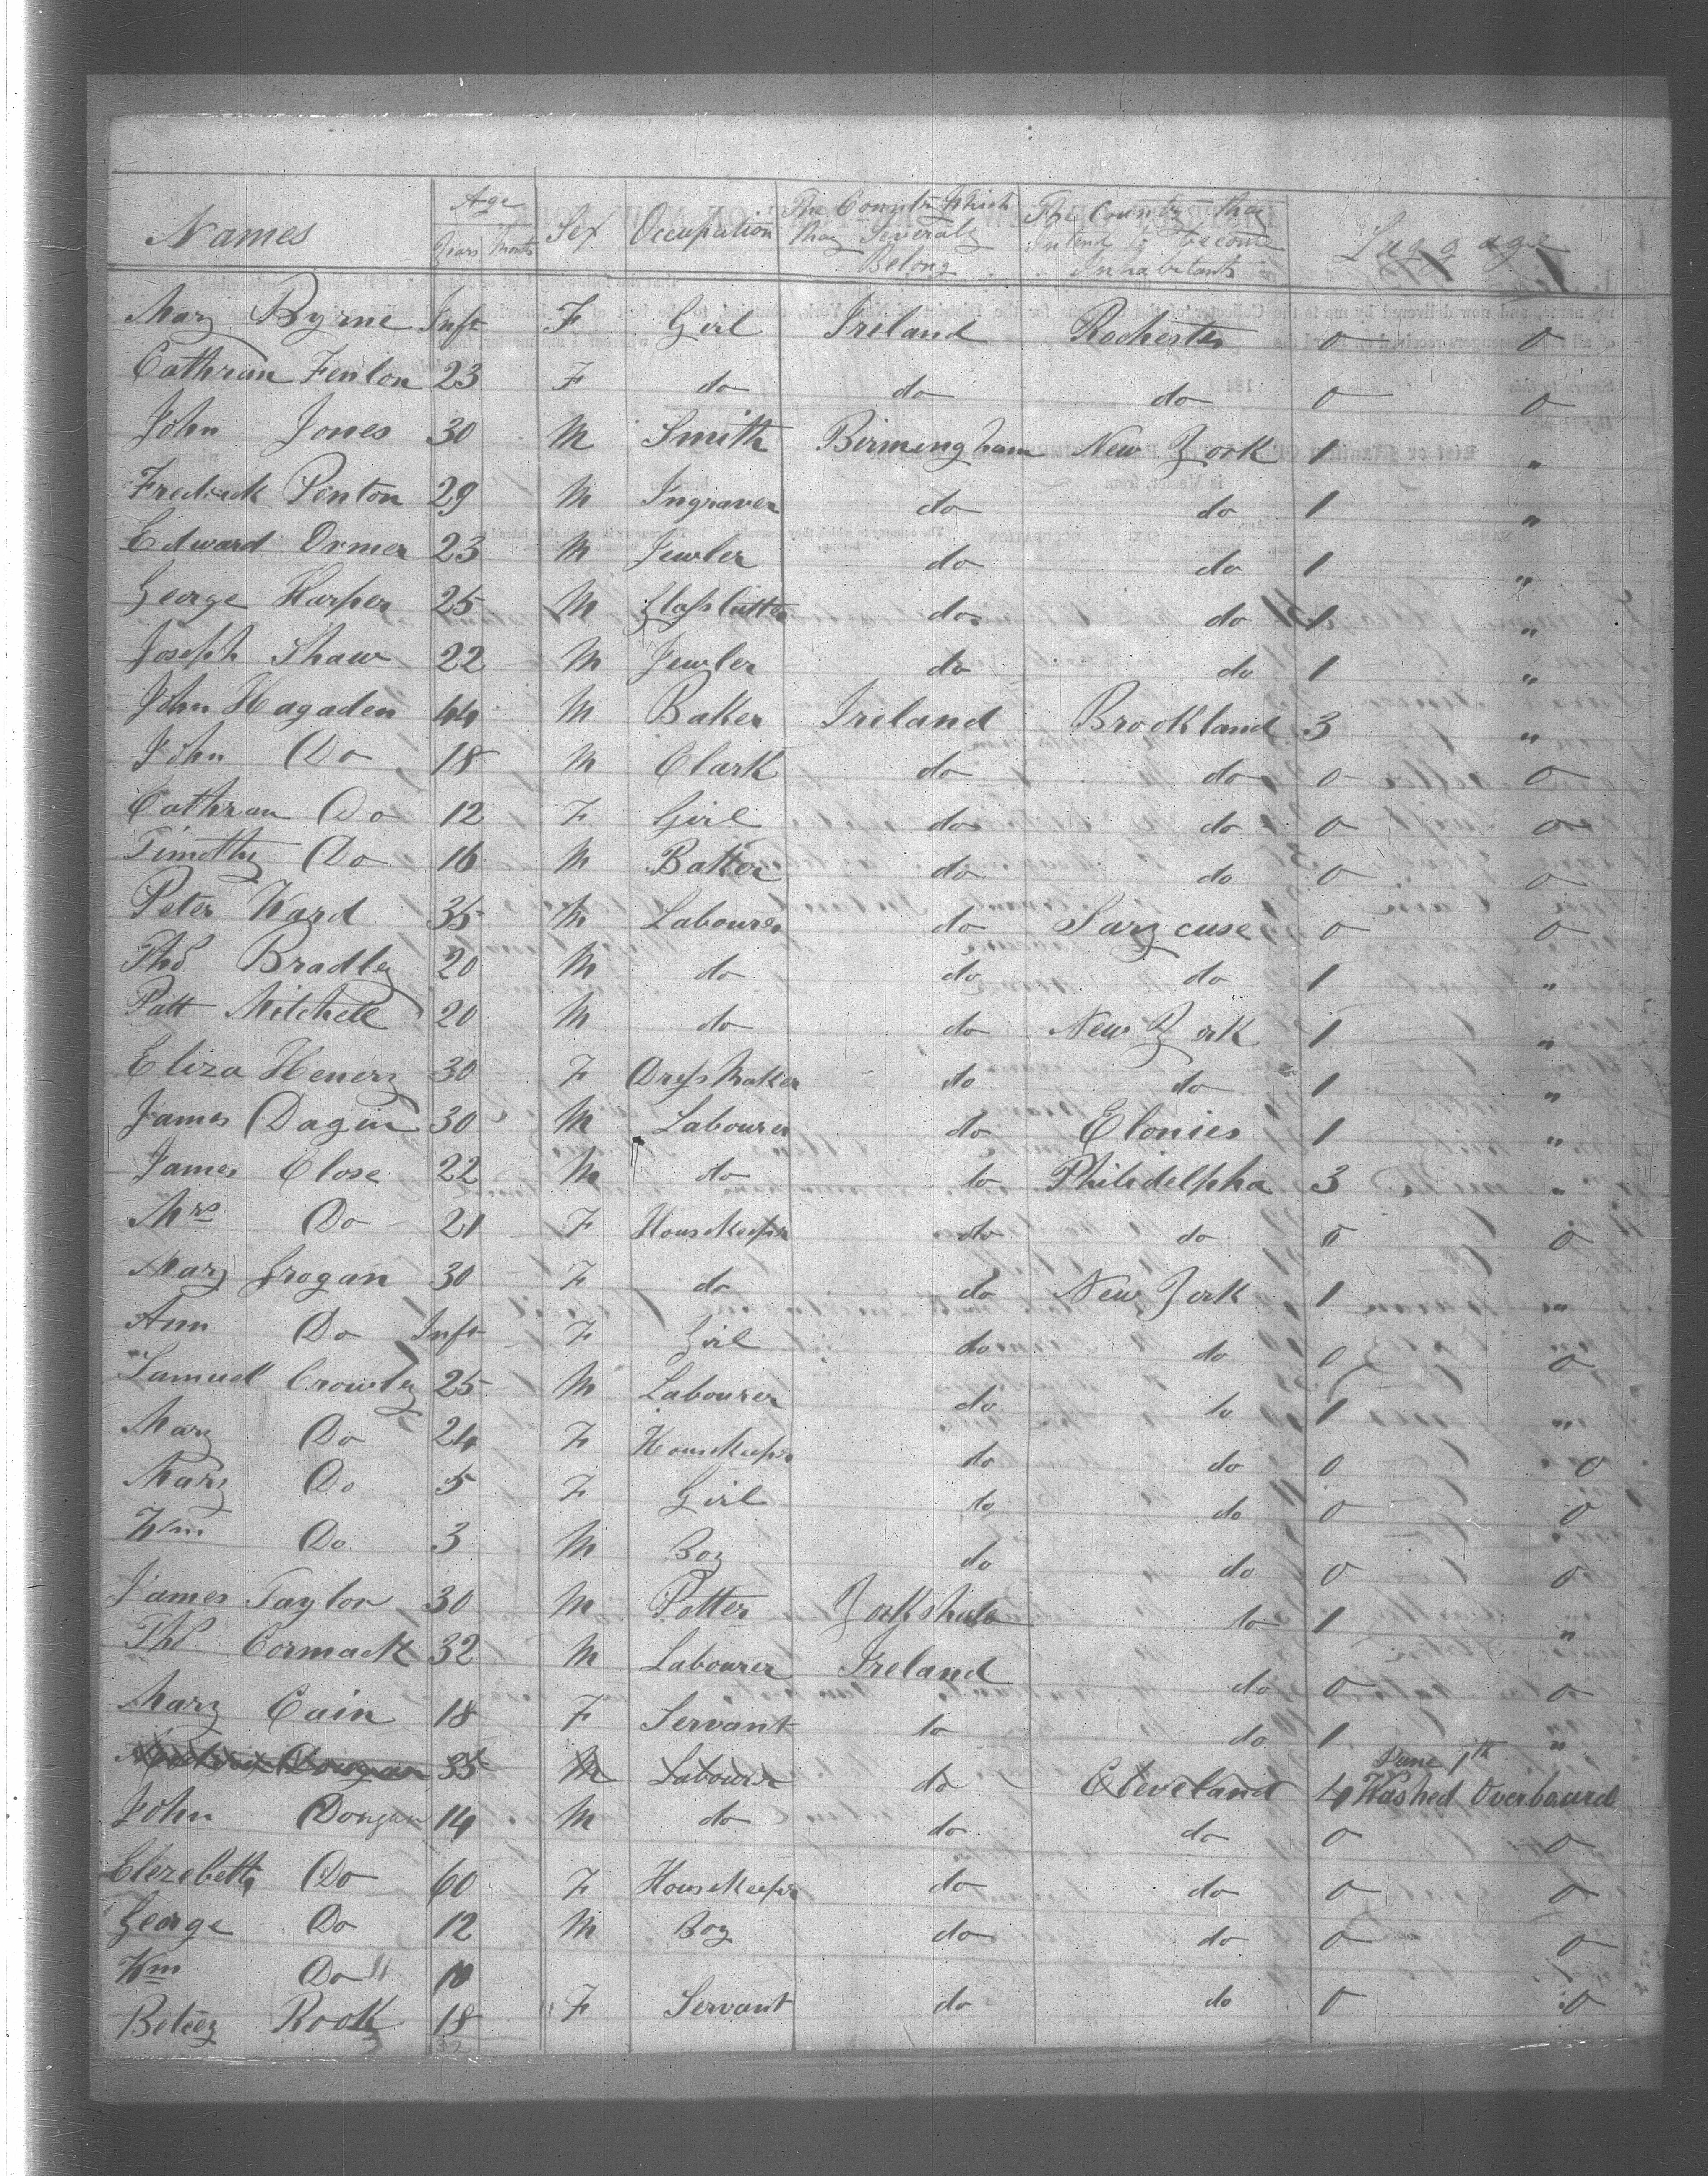 Names Age Sex Occupation The Country Which The Country they Luggage
Years Months they Severaly Intend to become
Belong Inhabitants
Mary Byrne Inft F Girl Ireland Rochester 0 0
Cathran Fenton 23 F do do do 0 0
John Jones 30 M Smith Birmengham New York 1 "
Fredrick Penton 29 M Ingraver do do 1 "
Edward Ormer 23 M Jewler do do 1 "
George Harper 25 M Glass Cutter do do 1 "
Joseph Shaw 22 M Jewler do do 1 "
John Hagaden 44 M Baker Ireland Brookland 3 "
John Do 18 M Clark do do 0 0
Cathran Do 12 F Girl do do 0 0
Timothy Do 16 M Baker do do 0 0
Peter Ward 35 M Labourer do Sarycuse 0 0
Thos Bradley 20 M do do do 1 "
Patt Mitchell 20 M do do New York 1 "
Eliza Henery 30 F Dress Maker do do 1 "
James Dagin 30 M Labourer do Elonies 1 "
James Close 22 M do do Philidelpha 3 "
Mrs Do 21 F HouseKeeper do do 0 0
Mary Grogan 30 F do do New York 1 "
Ann Do Inft F Girl do do 0 0
Samuel Crowley 25 M Labourer do do 1 "
Mary Do 24 F HouseKeeper do do 0 0
Mary Do 5 F Girl do do 0 0
Wm Do 3 M Boy do do 0 0
James Taylor 30 M Potter Yorkshire do 1 "
Thos Cormack 32 M Labourer Ireland do 0 0
Mary Cain 18 F Servant do do 1 "
35 M Labourer do Cleveland 4 June 1th Washed Overboard
John Dongan 14 M do do do 0 0
Elezebeth Do 60 F HouseKeeper do do 0 0
George Do 12 M Boy do do 0 0
Wm Do " 10
Betsey Rook 18 F Servant do do 0 0